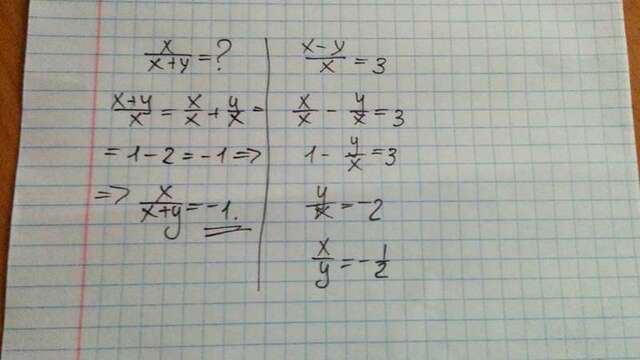 x/(x+y) = ?
(x+y)/x = x/x + y/x =
= 1 - 2 = -1 =>
=> x/(x+y) = -1.
(x-y)/x = 3
x/x - y/x = 3
1 - y/x = 3
y/x = -2
x/y = -1/2